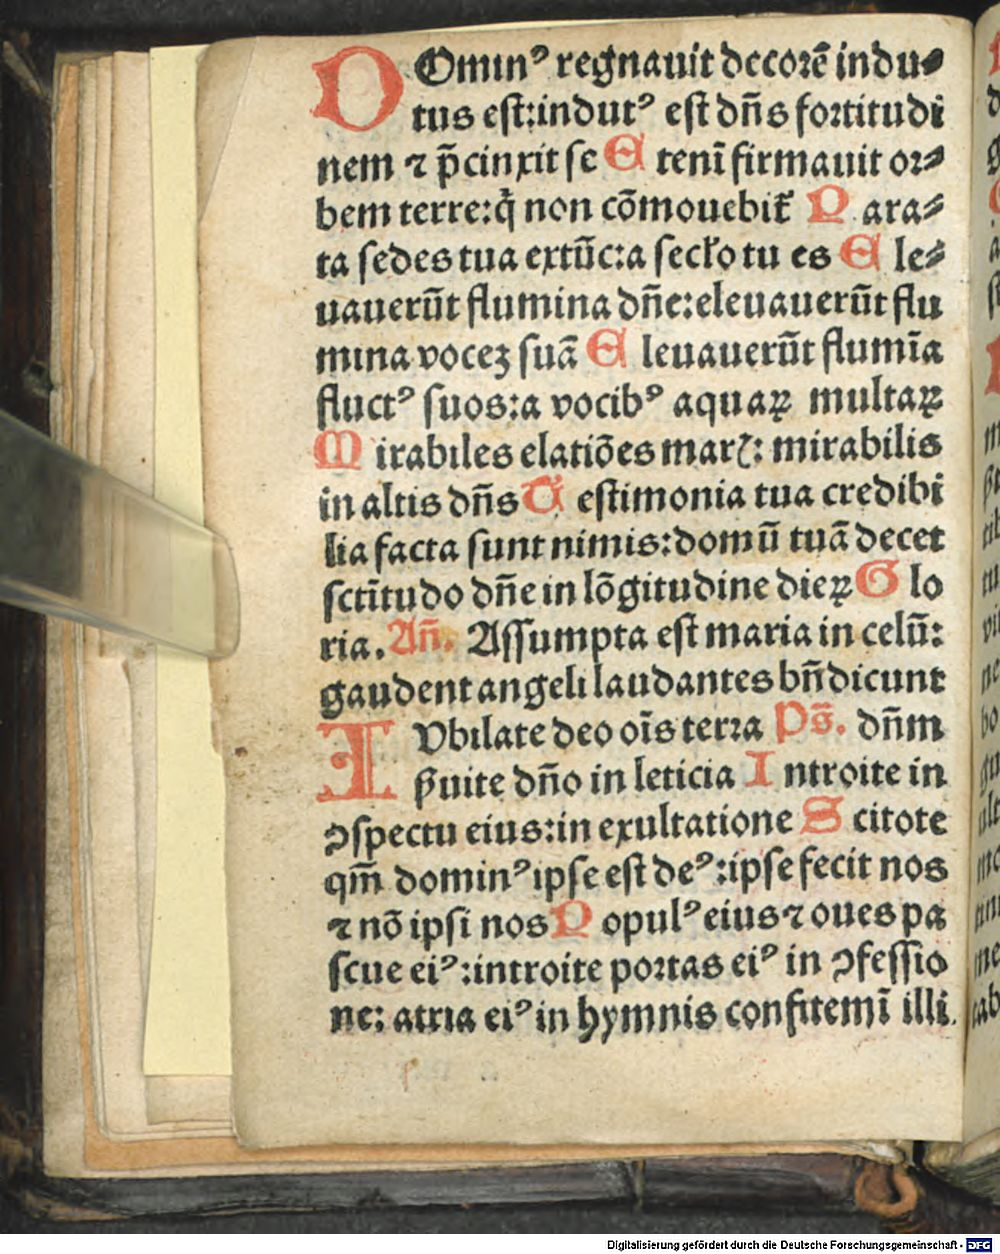 DOmin⁹ regnauit decorē indu⸗
tus est:indut⁹ est dn̄s fortitudi
nem ⁊ p̄cinxit se E tenī firmauit or⸗
bem terre:q̄ non cōmouebit᷑ P ara⸗
ta sedes tua extūc:a secło tu es E le⸗
uauerūt flumina dn̄e:eleuauerūt flu
mina vocez suā E leuauerūt flumīa
fluct⁹ suos:a vocib⁹ aquaꝝ multaꝝ
M irabiles elatiōes marꝭ: mirabilis
in altis dn̄s T estimonia tua credibi
lia facta sunt nimis:domū tuā decet
sctītudo dn̄e in lōgitudine dieꝝ G lo
ria. An̄. Assumpta est maria in celū:
gaudent angeli laudantes bn̄dicunt
IVbilate deo oīs terra Ps̄. dn̄m
ẜuite dn̄o in leticia I ntroite in
ꝯspectu eius:in exultatione S citote
qm̄ domin⁹ ipse est de⁹:ipse fecit nos
⁊ nō ipsi nos P opul⁹ eius ⁊ oues pa
scue ei⁹:introite portas ei⁹ in ꝯfessio
ne: atria ei⁹ in hymnis confitemī illi.
Digitalisierung gefördert durch die Deutsche Forschungsgemeinschaft - DFG